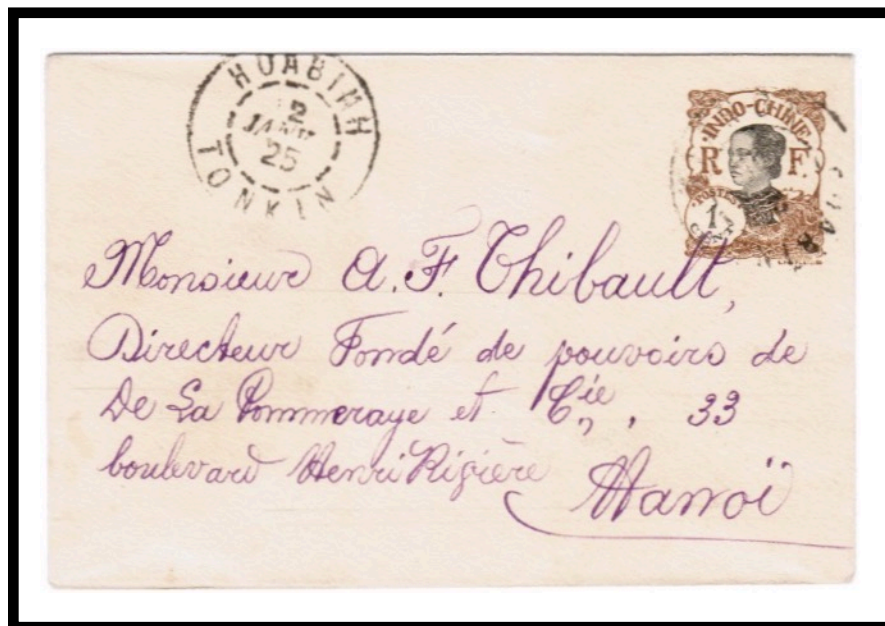 HOABINH
2
JANV
25
TONKIN
INDO-CHINE
R F.
POSTES
1
CENT
Monsieur A. F. Thibault,
Directeur Fondé de pouvoirs de
De La Pommeraye et Cie, 33
boulevard Henri Rivière
Hanoï